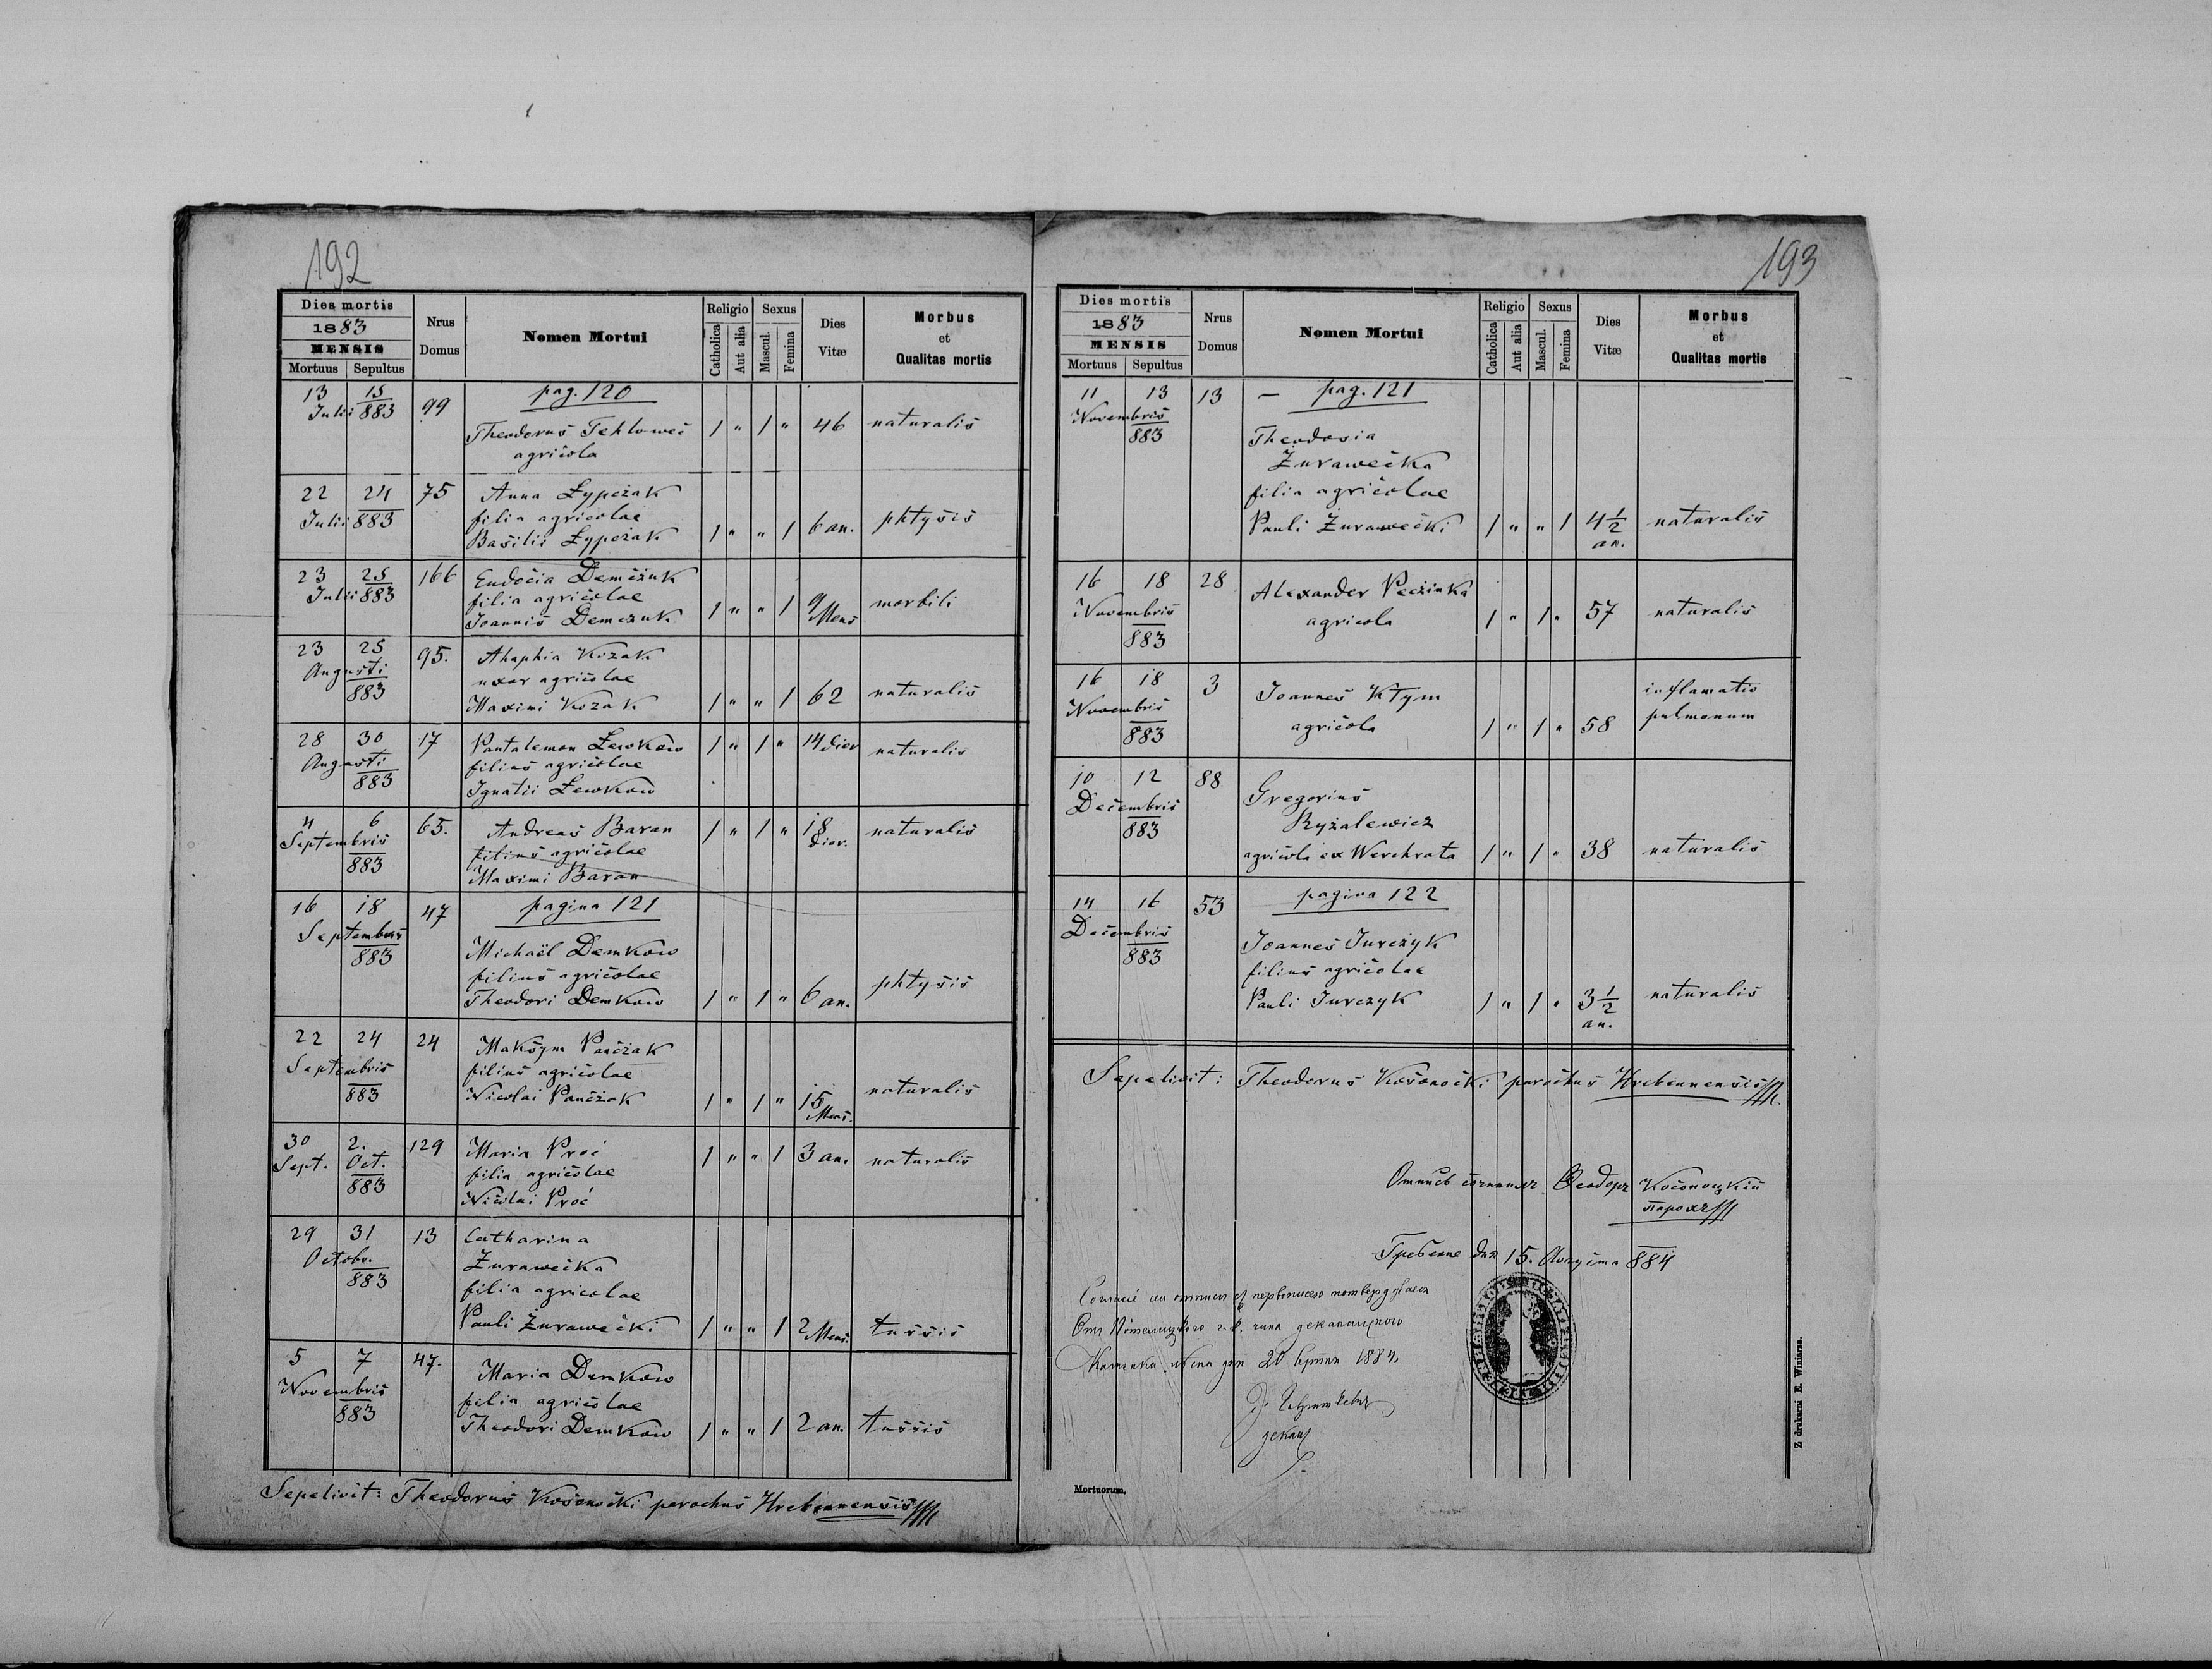 192
Dies mortis
1883
MENSIS
Mortuus Sepultus
Nrus Domus
Nomen Mortui
Religio
Catholica Aut alia
Sexus
Mascul. Femina
Dies Vitæ
Morbus
et
Qualitas mortis
pag. 120
13 15 99
Julii 883
Theodorus 1 " 1 " 46 naturalis
agricola
22 24 75 Anna Łypczak
Julii 883 filia agricolae
Basilii Łypczak 1 " " 1 6 an. phtysis
23 25 166 Eudocia Demczuk
Julii 883 filia agricolae
Joannis Demczuk 1 " " 1 9 Mens morbili
23 25 95. Ahaphia Kozak
Augusti uxor agricolae
883 Maximi Kozak 1 " " 1 62 naturalis
28 30 17 Pantalemon Łewkow 1 " 1 " 14 dier naturalis
Augusti filius agricolae
883 Ignatii Łewkow
4 6 65. Andreas Baran 1 " 1 " 18 dier. naturalis
Septembris filius agricolae
883 Maximi Baran
16 18 47 pagina 121
Septembris
883 Michaël Demkow
filius agricolae
Theodori Demkow 1 " 1 " 6 an. phtysis
22 24 24 Maksym Panczak
Septembris filius agricolae
883 Nicolai Panczak 1 " 1 " 15 Mens. naturalis
30 2. 129 Maria Proć 1 " " 1 3 an. naturalis
Sept. Oct. filia agricolae
883 Nicolai Proć
29 31 13 Catharina
Octobr. Żurawecka
883 filia agricolae
Pauli Żurawecki 1 " " 1 2 Mens. tussis
5 7 47. Maria Demkow
Novembris filia agricolae
883 Theodori Demkow 1 " " 1 2 an. tussis
Sepelivit: Theodorus Kosonocki parochus Hrebennensis
193
Dies mortis
1883
MENSIS
Mortuus Sepultus
Nrus Domus
Nomen Mortui
Religio
Catholica Aut alia
Sexus
Mascul. Femina
Dies Vitæ
Morbus
et
Qualitas mortis
11 13 13 — pag. 121
Novembris
883 Theodosia
Żurawecka
filia agricolae
Pauli Żurawecki 1 " " 1 4 1/2 an. naturalis
16 18 28 Alexander Peczinka
Novembris agricola 1 " 1 " 57 naturalis
883
16 18 3 Joannes Kłym inflamatio
Novembris agricola 1 " 1 " 58 pulmonum
883
10 12 88 Gregorius
Decembris Ryżalewicz
883 agricola ex Werchrata 1 " 1 " 38 naturalis
14 16 53 pagina 122
Decembris
883 Joannes Jurczyk
filius agricolae
Pauli Jurczyk 1 " 1 " 3 1/2 an. naturalis
Sepelivit: Theodorus Kosonocki parochus Hrebennensis
Ѳеодоръ Косоноцкій
парохъ
Гребенне дня 15. Августа 884
20 1884.
деканъ
Mortuorum.
Z drukarni E. Winiarza.